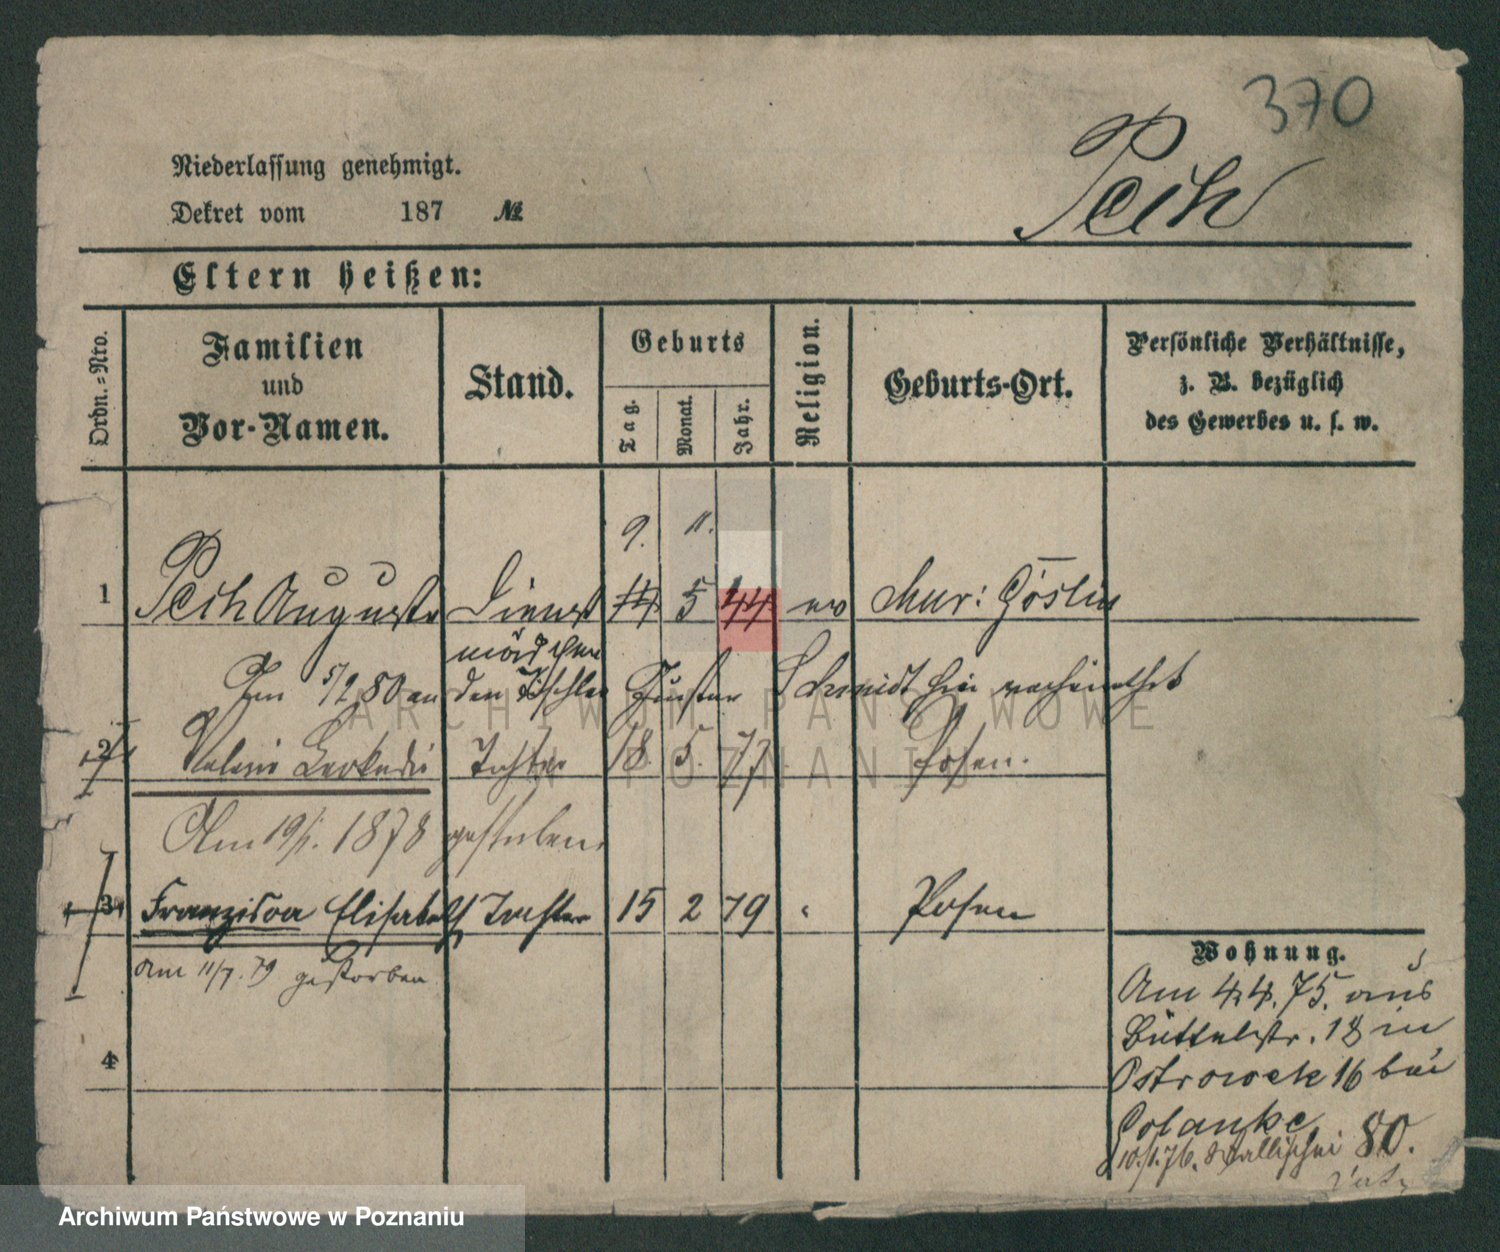 370
Niederlassung genehmigt.
Dekret vom 187 №
Peih
Eltern heißen:
Ordn.=Nro.
Familien
und
Vor-Namen.
Stand.
Geburts
Tag.
Monat.
Jahr.
Religion.
Geburts-Ort.
Persönliche Verhältnisse,
z. B. bezüglich
des Gewerbes u. s. w.
9. 11.
1 Peih Auguste Dienst 14 5 44 ev Mur: Goslin
mädchen
Am 5/2 80 an den Tischler Gustav Schmidt hier verheirathet
2 Valerie Leokadie Tochter 18 5. 77 Posen.
Am 19/1. 1878 gestorben.
3 Franziska Elisabeth Tochter 15 2 79 Posen
Am 11/7. 79 gestorben
4
Wohnung.
Am 4.4. 75. aus
Büttelstr. 18 in
Ostrowek 16 bei
Polanke
10./1. 76. Wallischei 80.
ARCHIWUM PAŃSTWOWE
W POZNANIU
Archiwum Państwowe w Poznaniu